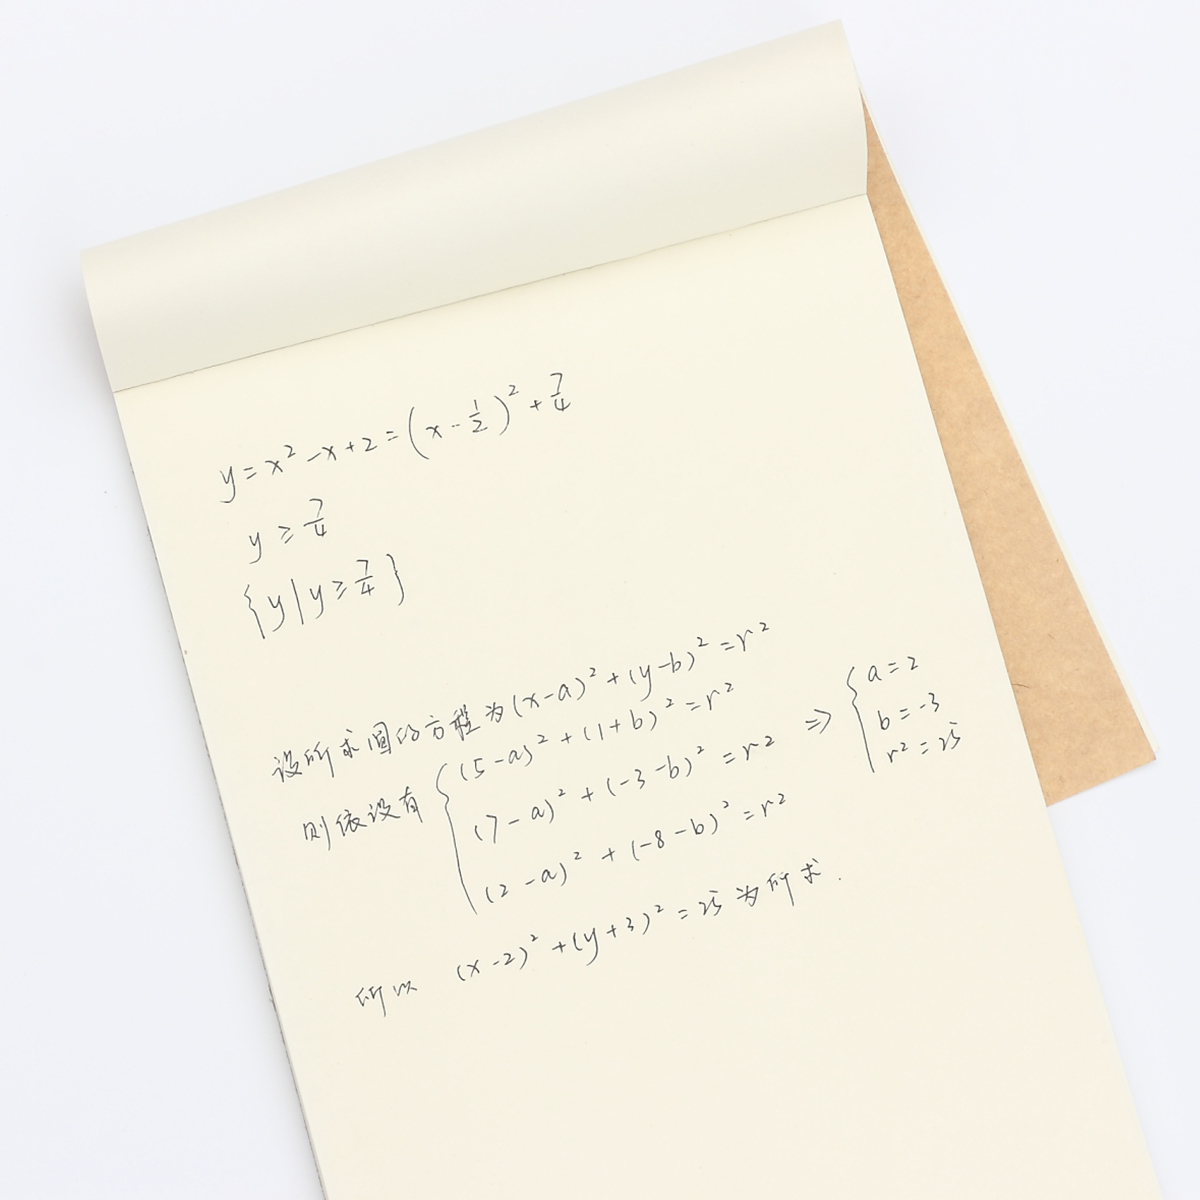 y=x²-x+2=(x-1/2)²+7/4
y≥7/4
{y|y≥7/4}
设所求圆的方程为(x-a)²+(y-b)²=r²
则依设有{(5-a)²+(1+b)²=r² ⇒ {a=2
(7-a)²+(-3-b)²=r² b=-3
(2-a)²+(-8-b)²=r² r²=25
所以 (x-2)²+(y+3)²=25为所求.